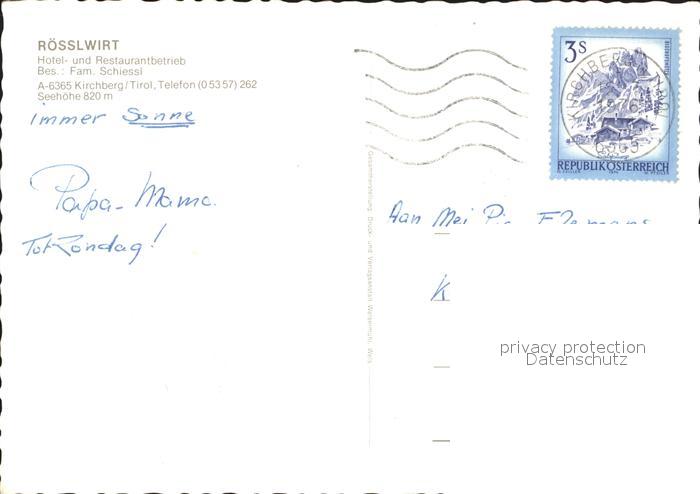 RÖSSLWIRT
Hotel- und Restaurantbetrieb
Bes.: Fam. Schiessl
A-6365 Kirchberg/Tirol, Telefon (0 53 57) 262
Seehöhe 820 m
immer Sonne
Papa - Mama.
Tot Zondag!
Gesamtherstellung: Druck- und Verlagsanstalt Welsermühl, Wels
3 S
KIRCHBERG TIROL
6365
REPUBLIK ÖSTERREICH
Aan Mej
K
privacy protection
Datenschutz